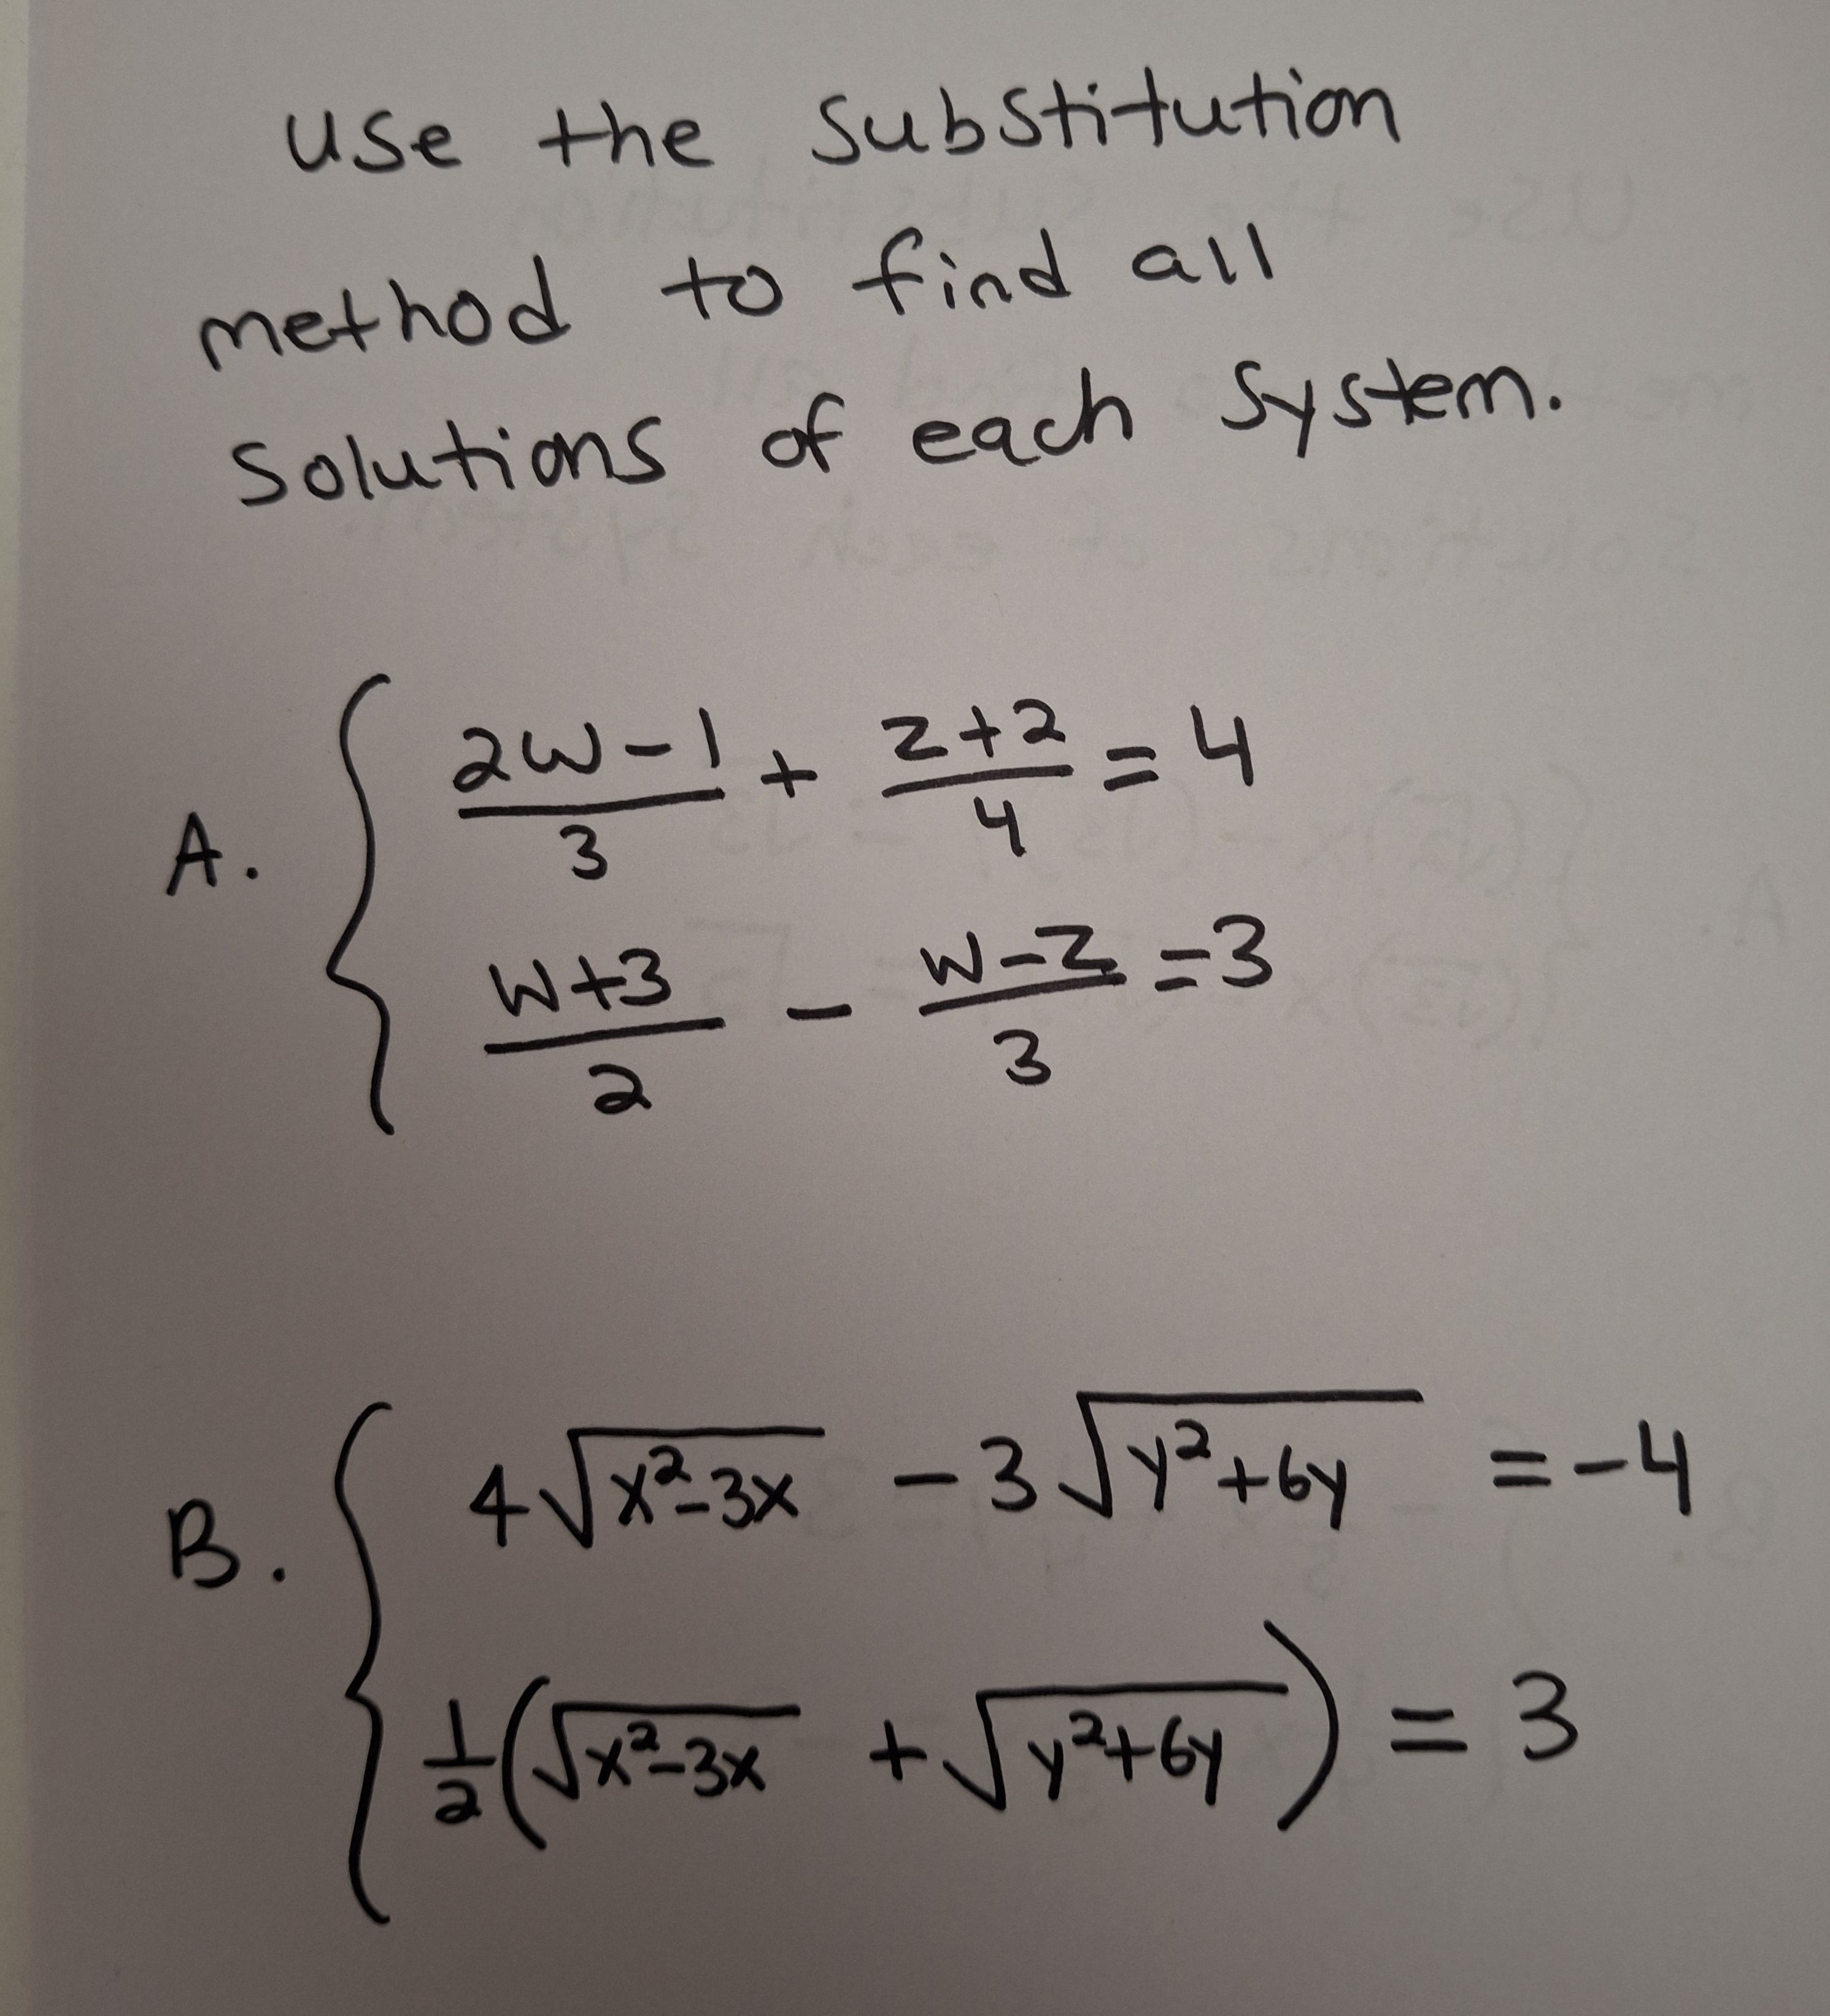 Use the Substitution
method to find all
Solutions of each System.
A. { (2w-1)/3 + (z+2)/4 = 4
(w+3)/2 - (w-z)/3 = 3
B. { 4√(x²-3x) - 3√(y²+6y) = -4
1/2(√(x²-3x) + √(y²+6y)) = 3